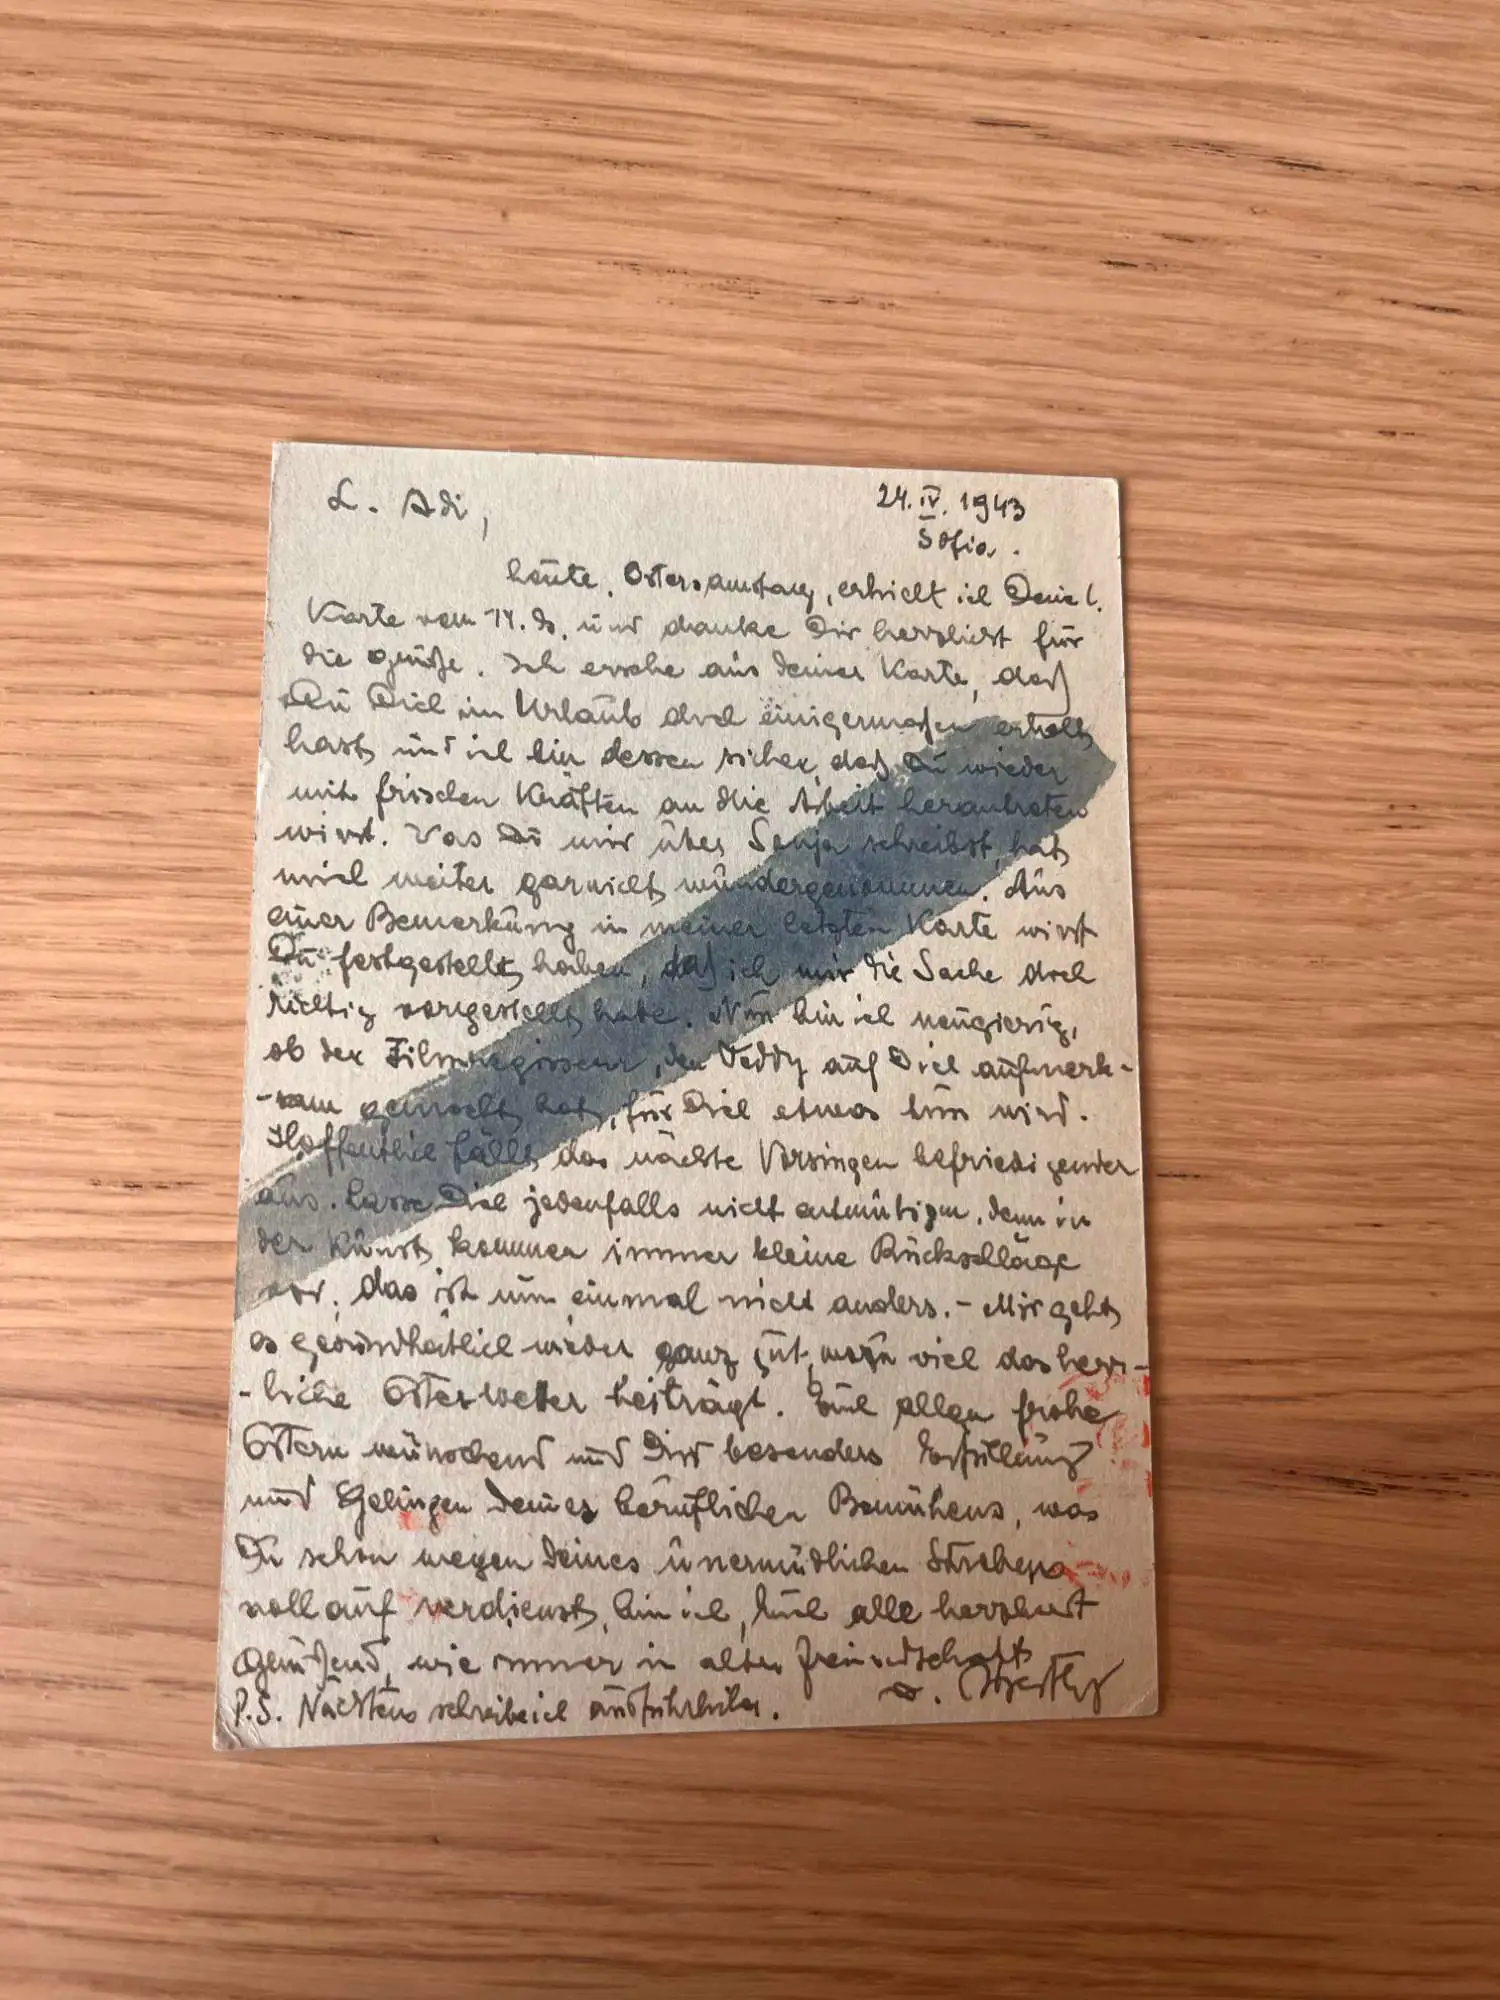 L. Adi,
24. IV. 1943
Sofia.
heute, Ostersamstag, erhielt ich Deine l.
Karte vom 14. ds. und danke Dir herzlichst für
die Grüße. Ich ersehe aus Deiner Karte, daß
Du Dich im Urlaub doch einigermaßen erholt
hast und ich bin dessen sicher, daß Du wieder
mit frischen Kräften an die Arbeit herantreten
wirst. Was Du mir über Sonja schreibst, hat
mich weiter garnicht wundergenommen. Aus
einer Bemerkung in meiner letzten Karte wirst
Du festgestellt haben, daß ich mir die Sache doch
richtig vorgestellt habe. Nun bin ich neugierig,
ob der Filmregisseur, den Teddy auf Dich aufmerk-
-sam gemacht hat, für Dich etwas tun wird.
Hoffentlich fällt das nächste Vorsingen befriedigender
aus. Lasse Dich jedenfalls nicht entmutigen, denn in
der Kunst kommen immer kleine Rückschläge
vor, das ist nun einmal nicht anders. - Mir geht
es gesundheitlich wieder ganz gut, wozu viel das herr-
-liche Osterwetter beiträgt. Euch allen frohe
Ostern wünschend und Dir besonders Erfüllung
und Gelingen Deines beruflichen Bemühens, was
Du schon wegen Deines unermüdlichen Strebens
vollauf verdienst, bin ich, Euch alle herzlichst
Grüßend, wie immer in alter Freundschaft
P.S. Nächstens schreibe ich ausführlicher.